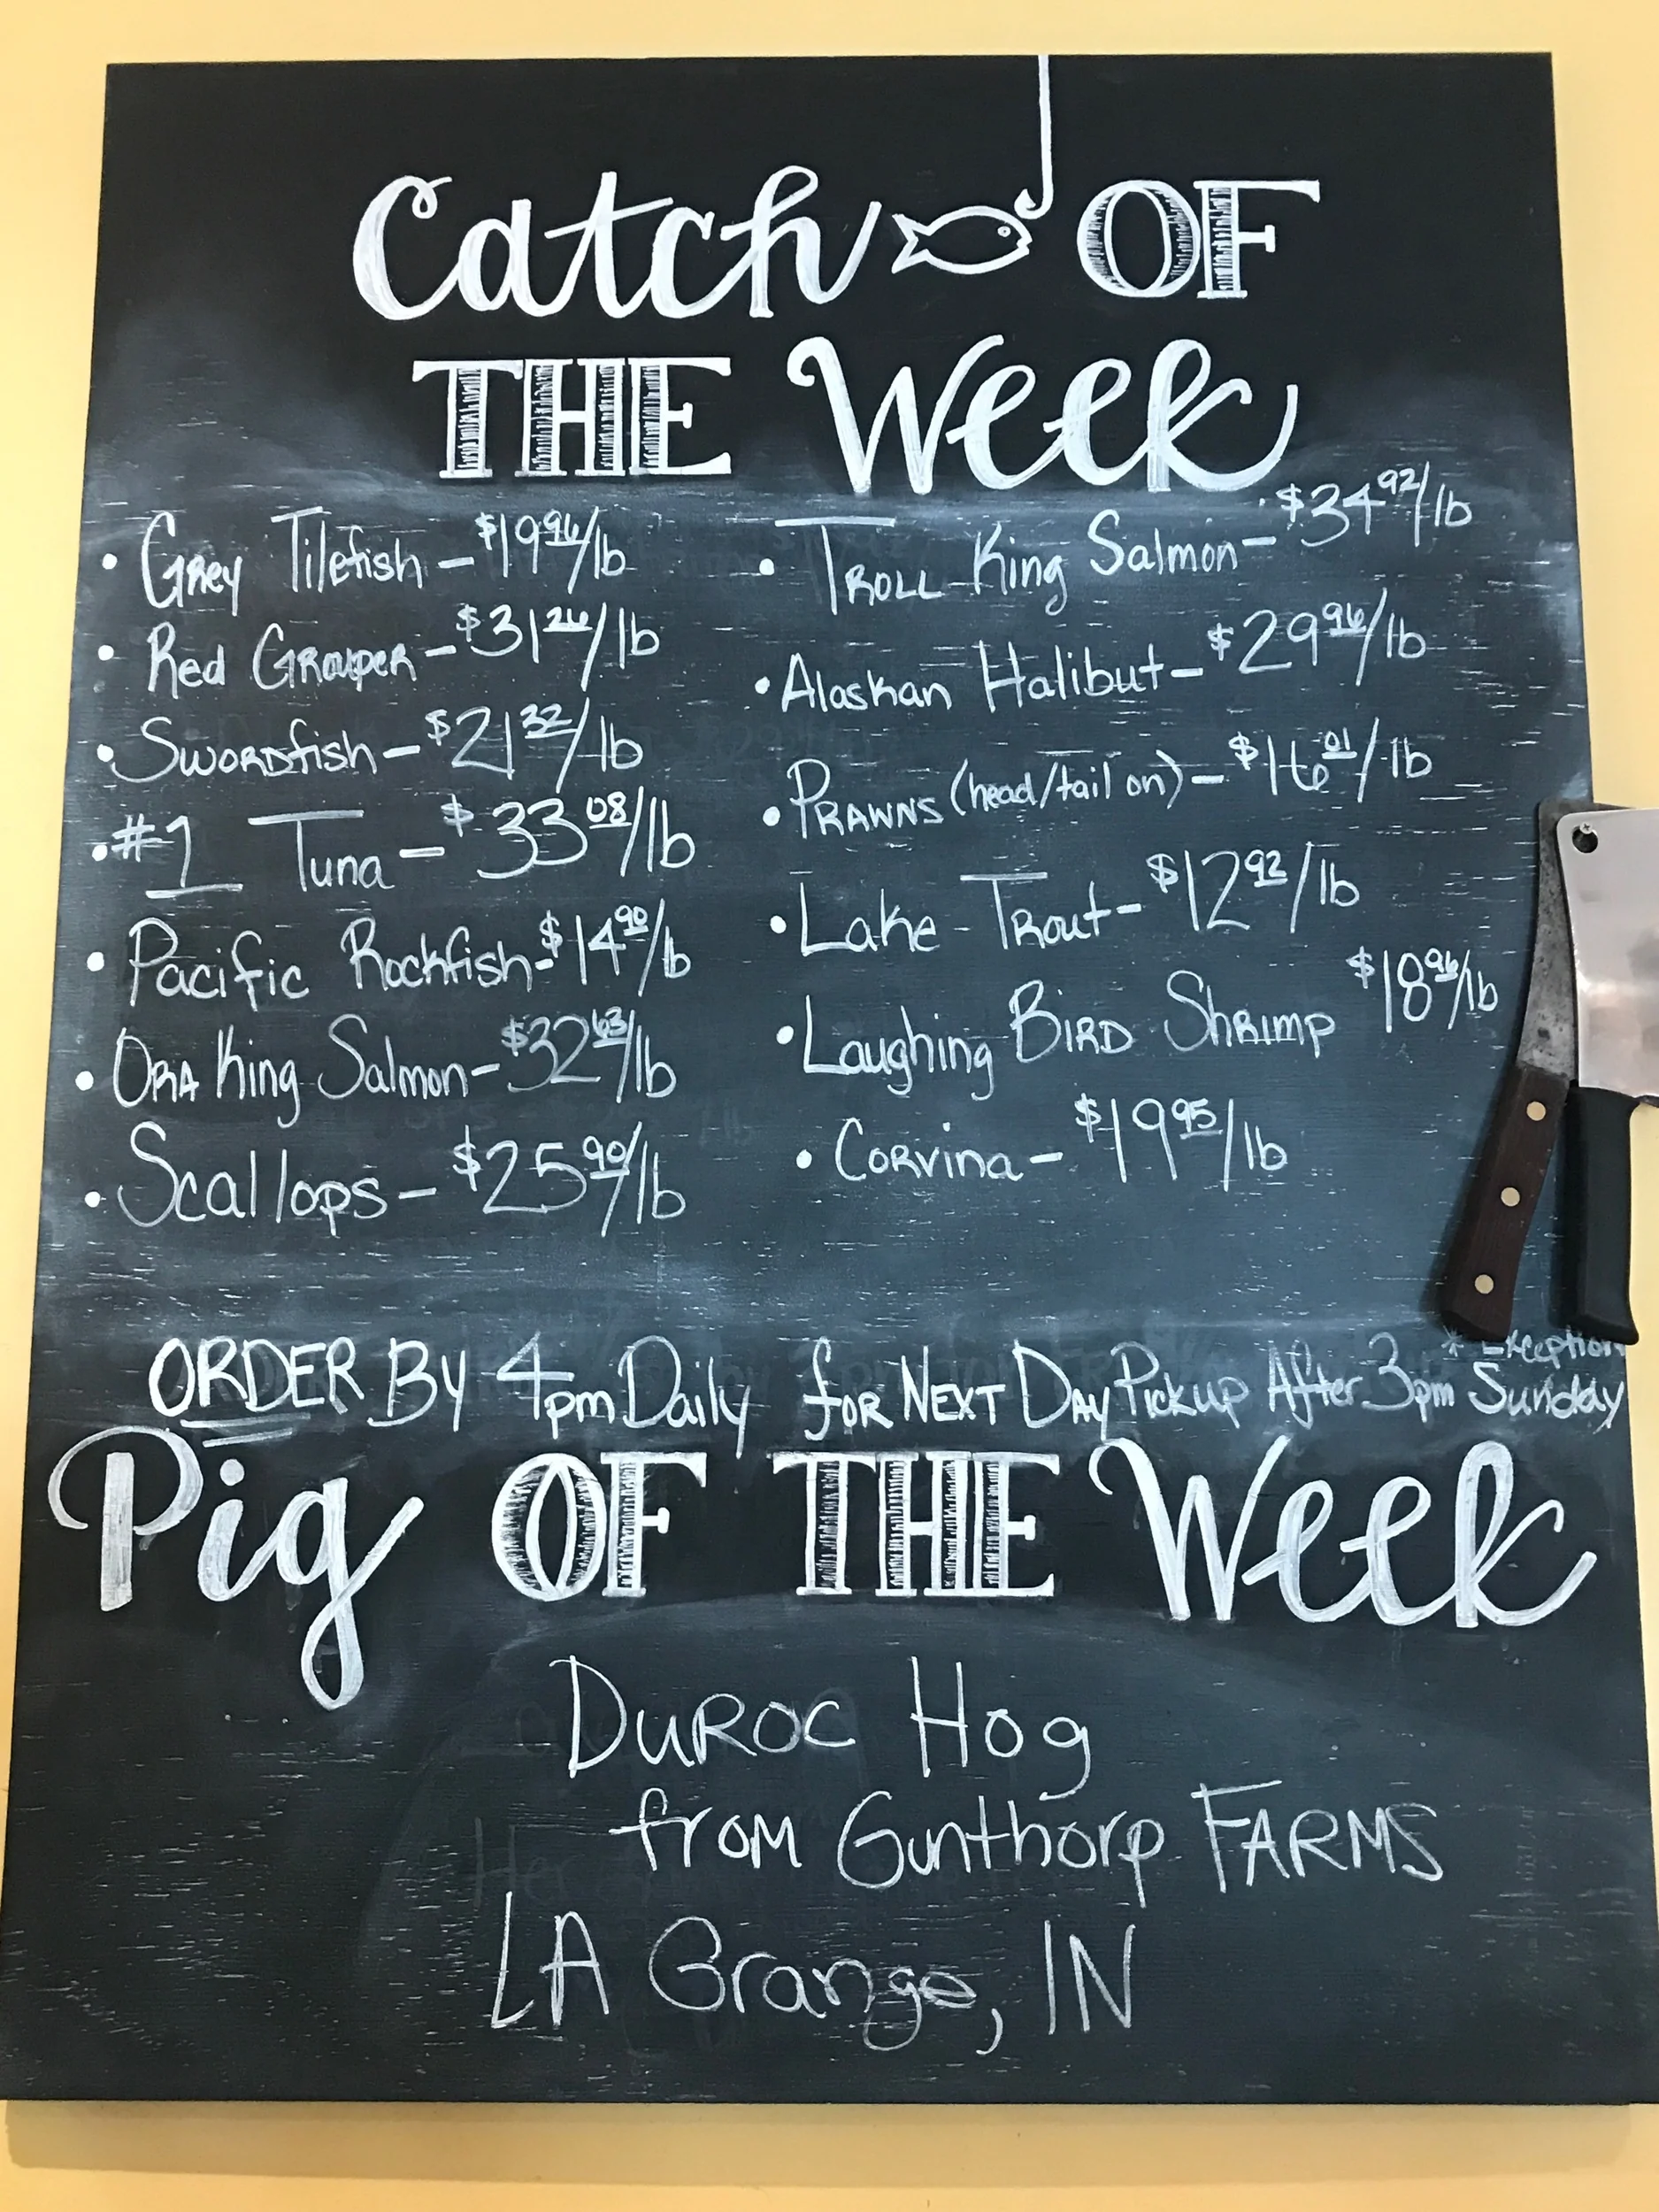 Catch OF
THE Week
• Grey Tilefish – $19.96/lb
• Red Grouper – $31.26/lb
• Swordfish – $21.32/lb
• #1 Tuna – $33.08/lb
• Pacific Rockfish - $14.90/lb
• Ora King Salmon – $32.63/lb
• Scallops – $25.90/lb
• Troll King Salmon – $34.92/lb
• Alaskan Halibut – $29.96/lb
• Prawns (head/tail on) – $16.01/lb
• Lake Trout – $12.92/lb
• Laughing Bird Shrimp $18.96/lb
• Corvina – $19.95/lb
ORDER By 4pm Daily for Next Day Pickup After 3pm
* Exception
Sunday
Pig OF THE Week
Duroc Hog
from Gunthorp FARMS
LA Grange, IN